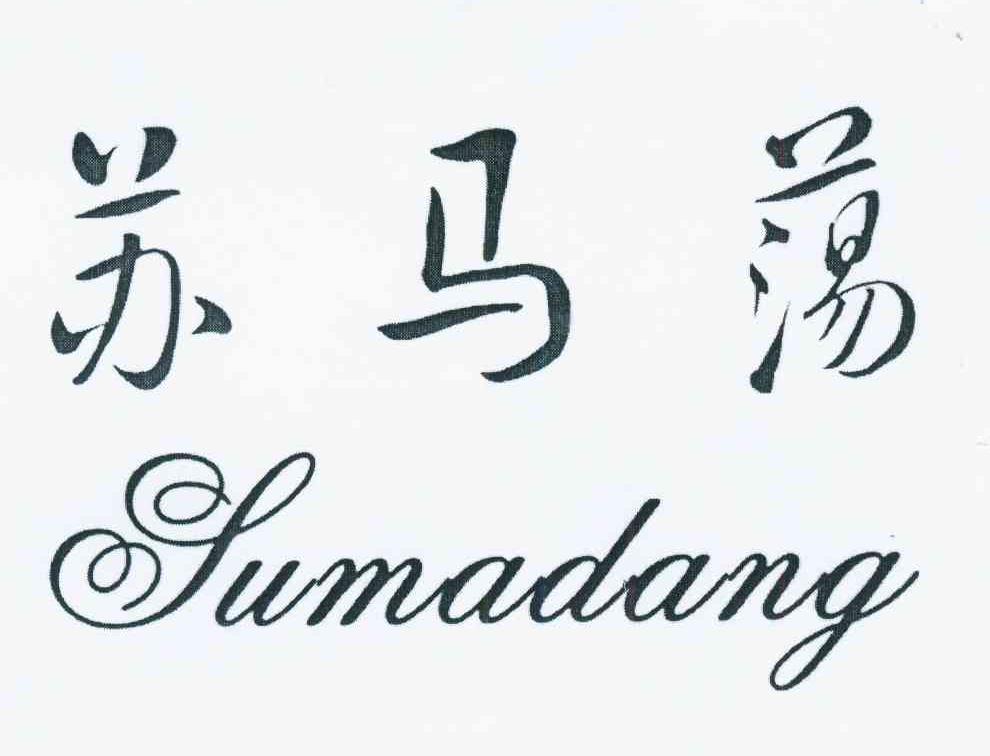 苏马荡
Sumadang